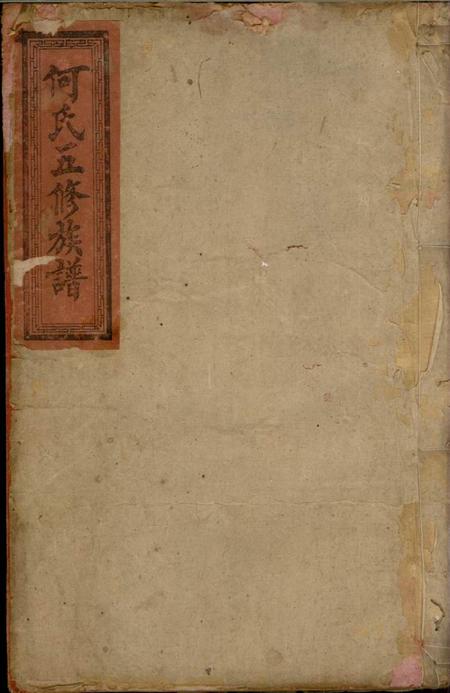 何氏五修族譜